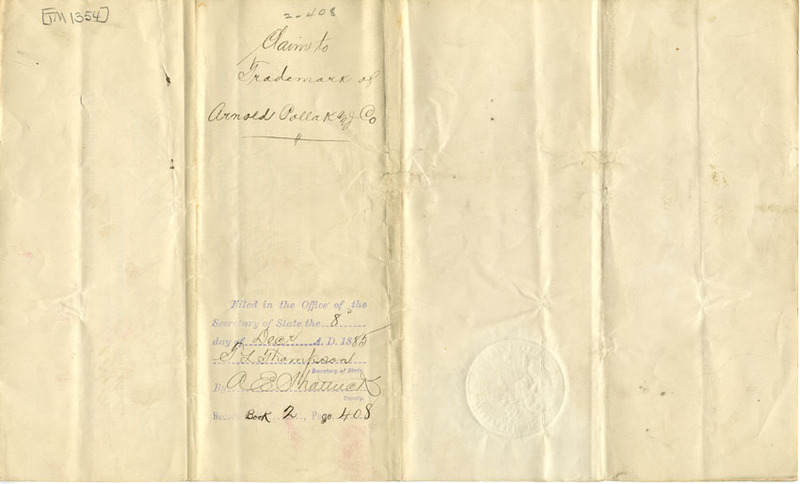 [TM1354]
2-408
Claim to
Trademark of
Arnold Pollak and Co
Filed in the Office of the
Secretary of State the 8
day of Decr A. D. 1885
T L Thompson
Secretary of State
By A E Shattuck
Deputy.
Record Book 2, Page 408